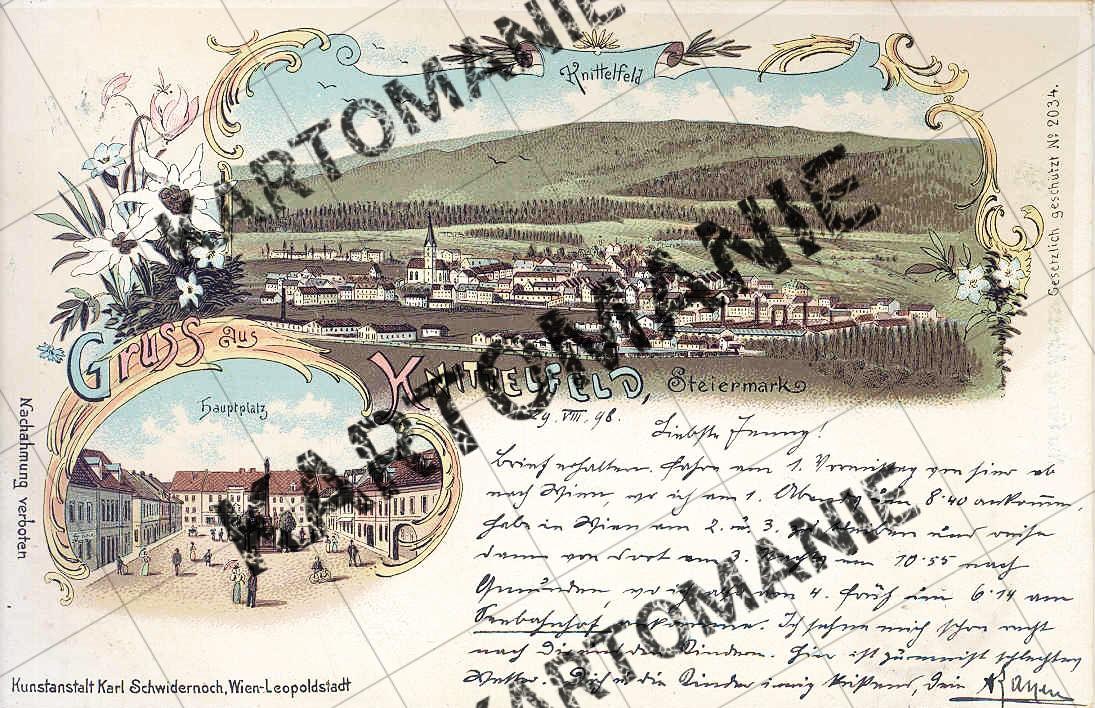 Knittelfeld
Gesetzlich geschützt No 2034.
Gruss aus
KNITTELFELD, Steiermark
Hauptplatz
Nachahmung verboten
29. VIII. 98.
Liebste Jenny!
Brief erhalten. Fahre am 1. Vormittag von hier ab
nach Wien, wo ich am 1. Abends um 8·40 ankomme,
habe in Wien am 2. u. 3. zu und reise
dann von dort am 3. Nachts um 10·55 nach
Gmunden, wo ich also am 4. früh um 6·14 am
Seebahnhof ankomme. Ich sehne mich schon recht
nach Dir und den Kindern. Hier ist zumeist schlechtes
Wetter. Dich u. die Kinder innig küssend, Dein
Kunstanstalt Karl Schwidernoch, Wien-Leopoldstadt
KARTOMANIE
KARTOMANIE
KARTOMANIE